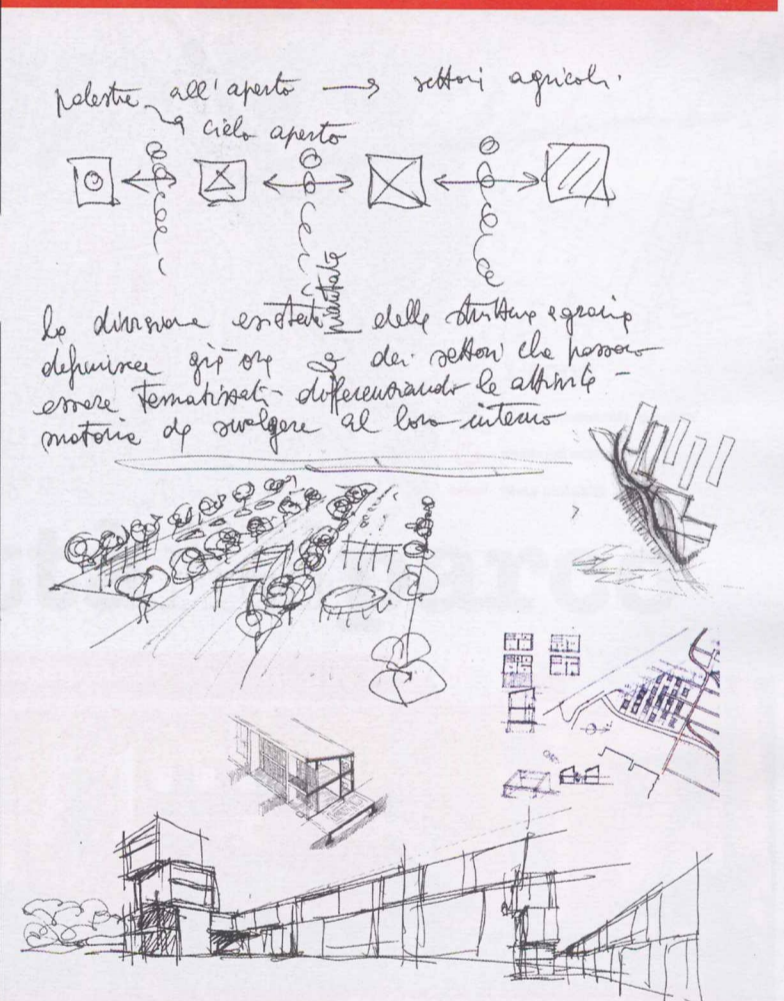 palestre all'aperto → settori agricoli.
a cielo aperto
piantate
la divisione esistente delle strutture agrarie
definisce già ora dei settori che possono
essere tematizzati differenziando le attività
motorie da svolgere al loro interno